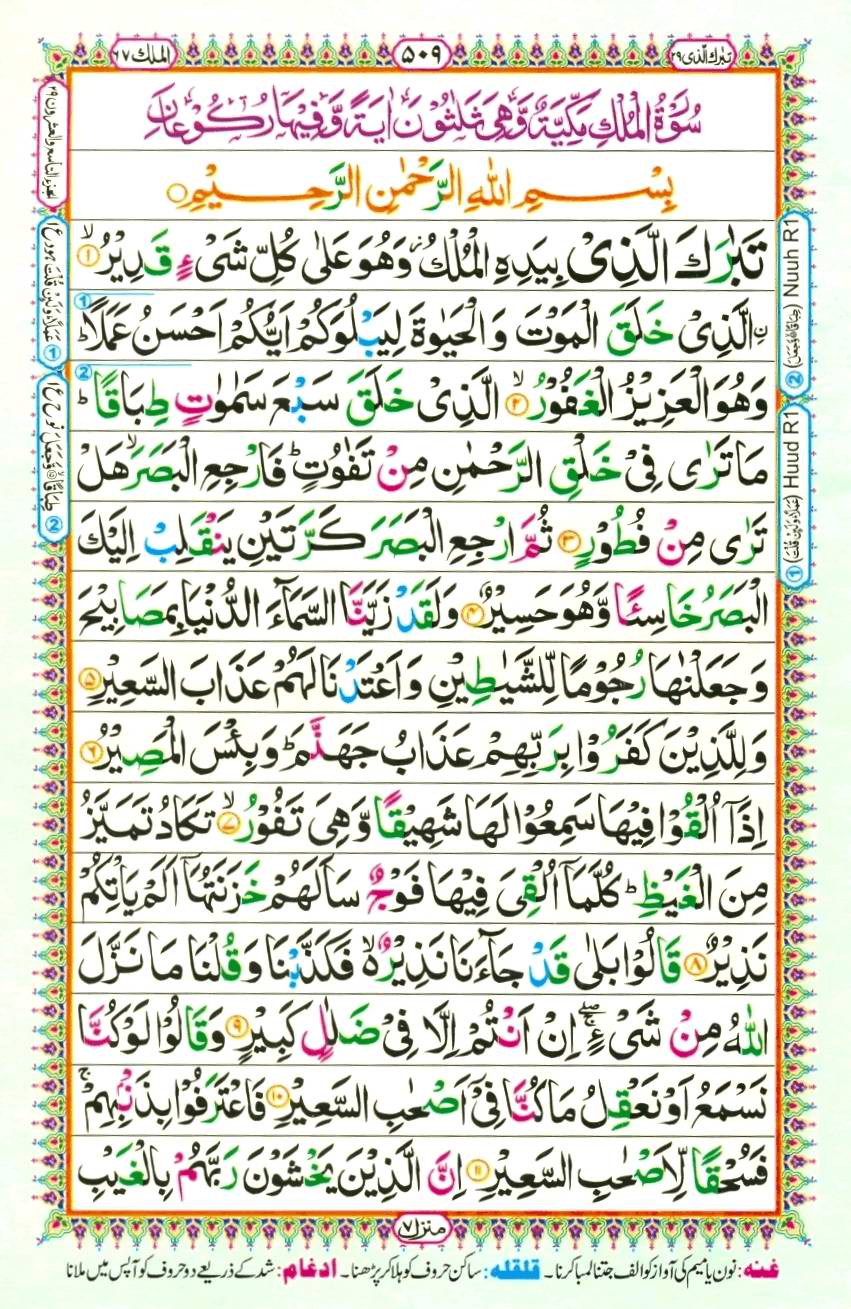 تبٰرك الذی ٢٩
٥٠٩
الملك ٦٧
سُوْرَةُ الْمُلْكِ مَكِّيَّةٌ وَّهِیَ ثَلٰثُوْنَ اٰيَةً وَّفِيْهَا رُكُوْعَانِ
بِسْمِ اللّٰهِ الرَّحْمٰنِ الرَّحِيْمِ
تَبٰرَكَ الَّذِیْ بِيَدِهِ الْمُلْكُ ؗ وَهُوَ عَلٰی كُلِّ شَیْءٍ قَدِيْرُ ۙ ﴿١﴾
ۨالَّذِیْ خَلَقَ الْمَوْتَ وَالْحَيٰوةَ لِيَبْلُوَكُمْ اَيُّكُمْ اَحْسَنُ عَمَلًا ؕ
وَهُوَ الْعَزِيْزُ الْغَفُوْرُ ۙ ﴿٢﴾ الَّذِیْ خَلَقَ سَبْعَ سَمٰوٰتٍ طِبَاقًا ؕ
مَا تَرٰی فِیْ خَلْقِ الرَّحْمٰنِ مِنْ تَفٰوُتٍ ؕ فَارْجِعِ الْبَصَرَ ۙ هَلْ
تَرٰی مِنْ فُطُوْرٍ ﴿٣﴾ ثُمَّ ارْجِعِ الْبَصَرَ كَرَّتَيْنِ يَنْقَلِبْ اِلَيْكَ
الْبَصَرُ خَاسِئًا وَّهُوَ حَسِيْرٌ ﴿٤﴾ وَلَقَدْ زَيَّنَّا السَّمَآءَ الدُّنْيَا بِمَصَابِيْحَ
وَجَعَلْنٰهَا رُجُوْمًا لِّلشَّيٰطِيْنِ وَاَعْتَدْنَا لَهُمْ عَذَابَ السَّعِيْرِ ﴿٥﴾
وَلِلَّذِيْنَ كَفَرُوْا بِرَبِّهِمْ عَذَابُ جَهَنَّمَ ؕ وَبِئْسَ الْمَصِيْرُ ﴿٦﴾
اِذَآ اُلْقُوْا فِيْهَا سَمِعُوْا لَهَا شَهِيْقًا وَّهِیَ تَفُوْرُ ۙ ﴿٧﴾ تَكَادُ تَمَيَّزُ
مِنَ الْغَيْظِ ؕ كُلَّمَآ اُلْقِیَ فِيْهَا فَوْجٌ سَاَلَهُمْ خَزَنَتُهَآ اَلَمْ يَاْتِكُمْ
نَذِيْرٌ ﴿٨﴾ قَالُوْا بَلٰی قَدْ جَآءَنَا نَذِيْرٌ ۙ۬ فَكَذَّبْنَا وَقُلْنَا مَا نَزَّلَ
اللّٰهُ مِنْ شَیْءٍ ۖۚ اِنْ اَنْتُمْ اِلَّا فِیْ ضَلٰلٍ كَبِيْرٍ ﴿٩﴾ وَقَالُوْا لَوْ كُنَّا
نَسْمَعُ اَوْ نَعْقِلُ مَا كُنَّا فِیْٓ اَصْحٰبِ السَّعِيْرِ ﴿١٠﴾ فَاعْتَرَفُوْا بِذَنْۢبِهِمْ ۚ
فَسُحْقًا لِّاَصْحٰبِ السَّعِيْرِ ﴿١١﴾ اِنَّ الَّذِيْنَ يَخْشَوْنَ رَبَّهُمْ بِالْغَيْبِ
منزل ٧
غنه: نون یا میم کی آواز کو الف جتنا لمبا کرنا۔ قلقله: ساکن حروف کو ہلا کر پڑھنا۔ ادغام: شد کے ذریعے دو حروف کو آپس میں ملانا
② (طِبَاقًا ۙ وَّجَعَلَ) Nuuh R1
① (عَمَلًا ؕ وَلَئِنْ قُلْتَ) Huud R1
الجزء التاسع والعشرون ٢٩
عَمَلًا ؕ وَلَئِنْ قُلْتَ هود ع ١ ①
طِبَاقًا ۙ وَّجَعَلَ نوح ع ١ ②
①
②